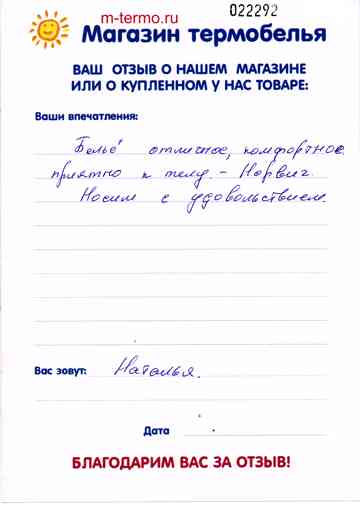 022292
m-termo.ru
Магазин термобелья
ВАШ ОТЗЫВ О НАШЕМ МАГАЗИНЕ
ИЛИ О КУПЛЕННОМ У НАС ТОВАРЕ:
Ваши впечатления:
Бельё отличное, комфортное
приятно к телу. - Норвиг.
Носим с удовольствием.
Вас зовут: Наталья.
Дата
БЛАГОДАРИМ ВАС ЗА ОТЗЫВ!